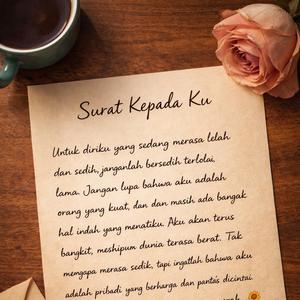 Surat Kepada Ku
Untuk diriku yang sedang merasa lelah
dan sedih, janganlah bersedih terlolai,
lama. Jangan lupa bahwa aku adalah
orang yang kuat, dan dan masih ada bangak
hal indah yang menatiku. Aku akan terus
bangkit, meshipum dunia terasa berat. Tak
mengapa merasa sedik, tapi ingatlah bahwa aku
adalah pribadi yang berharga dan pantas dicintai.